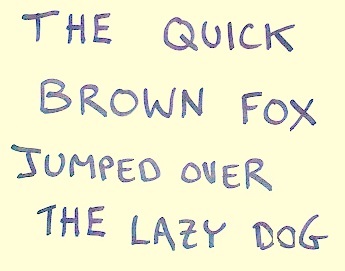 THE QUICK
BROWN FOX
JUMPED OVER
THE LAZY DOG